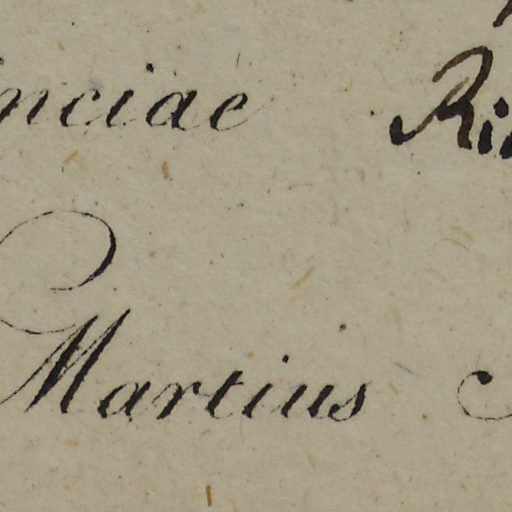 nciae Ri
Martius